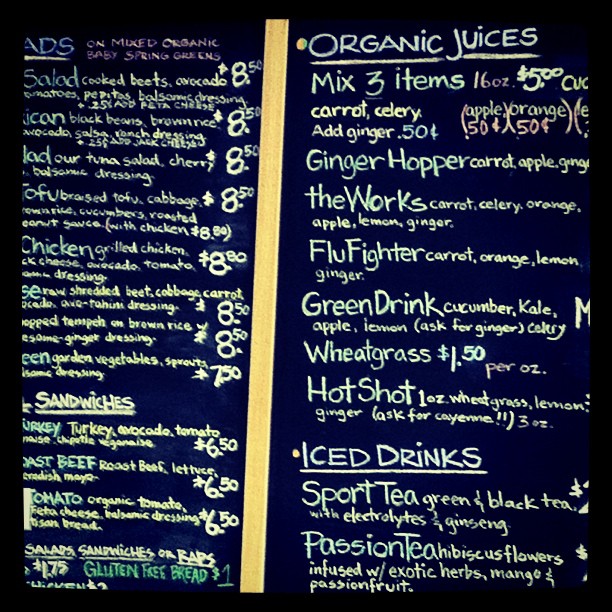 ADS ON MIXED ORGANIC
BABY SPRING GREENS
Salad cooked beets, avocado $8.50
omatoes, pepitas, balsamic dressing.
+ .25¢ ADD FETA CHEESE
ican black beans, brown rice $8.50
avocado, salsa, ranch dressing
+ .25¢ ADD JACK CHEESE
lad our tuna salad, cherry $8.50
balsamic dressing.
Tofu braised tofu, cabbage, $8.50
own rice, cucumbers, roasted
eanut sauce. (with chicken $8.80)
Chicken grilled chicken, $8.80
ck cheese, avocado, tomato,
dressing.
se raw shredded beet, cabbage, carrot,
ocado, avo-tahini dressing. 8.50
opped tempeh on brown rice w/
esame-ginger dressing. 8.50
een garden vegetables, sprouts,
lsamic dressing $7.50
SANDWICHES
URKEY Turkey, avocado, tomato
naise, chipotle veganaise $6.50
OAST BEEF Roast Beef, lettuce,
eradish mayo $6.50
TOMATO organic tomato,
Feta cheese, balsamic dressing $6.50
isan bread.
SALADS, SANDWICHES OR RAPS
$1.75 GLUTEN FREE BREAD $1
CHICKEN $2
ORGANIC JUICES
Mix 3 items 16oz. $5.00 cuc
carrot, celery, (apple .50¢) (orange .50¢) (
Add ginger .50¢
Ginger Hopper carrot, apple, ginge
the Works carrot, celery, orange,
apple, lemon, ginger.
Flu Fighter carrot, orange, lemon,
ginger.
Green Drink cucumber, Kale, M
apple, lemon (ask for ginger) celery
Wheatgrass $1.50 per oz.
Hot Shot 1oz. wheatgrass, lemon,
ginger (ask for cayenne!!) 3 oz.
ICED DRINKS
Sport Tea green & black tea $
with electrolytes & ginseng.
Passion Tea hibiscus flowers $
infused w/ exotic herbs, mango &
passionfruit.